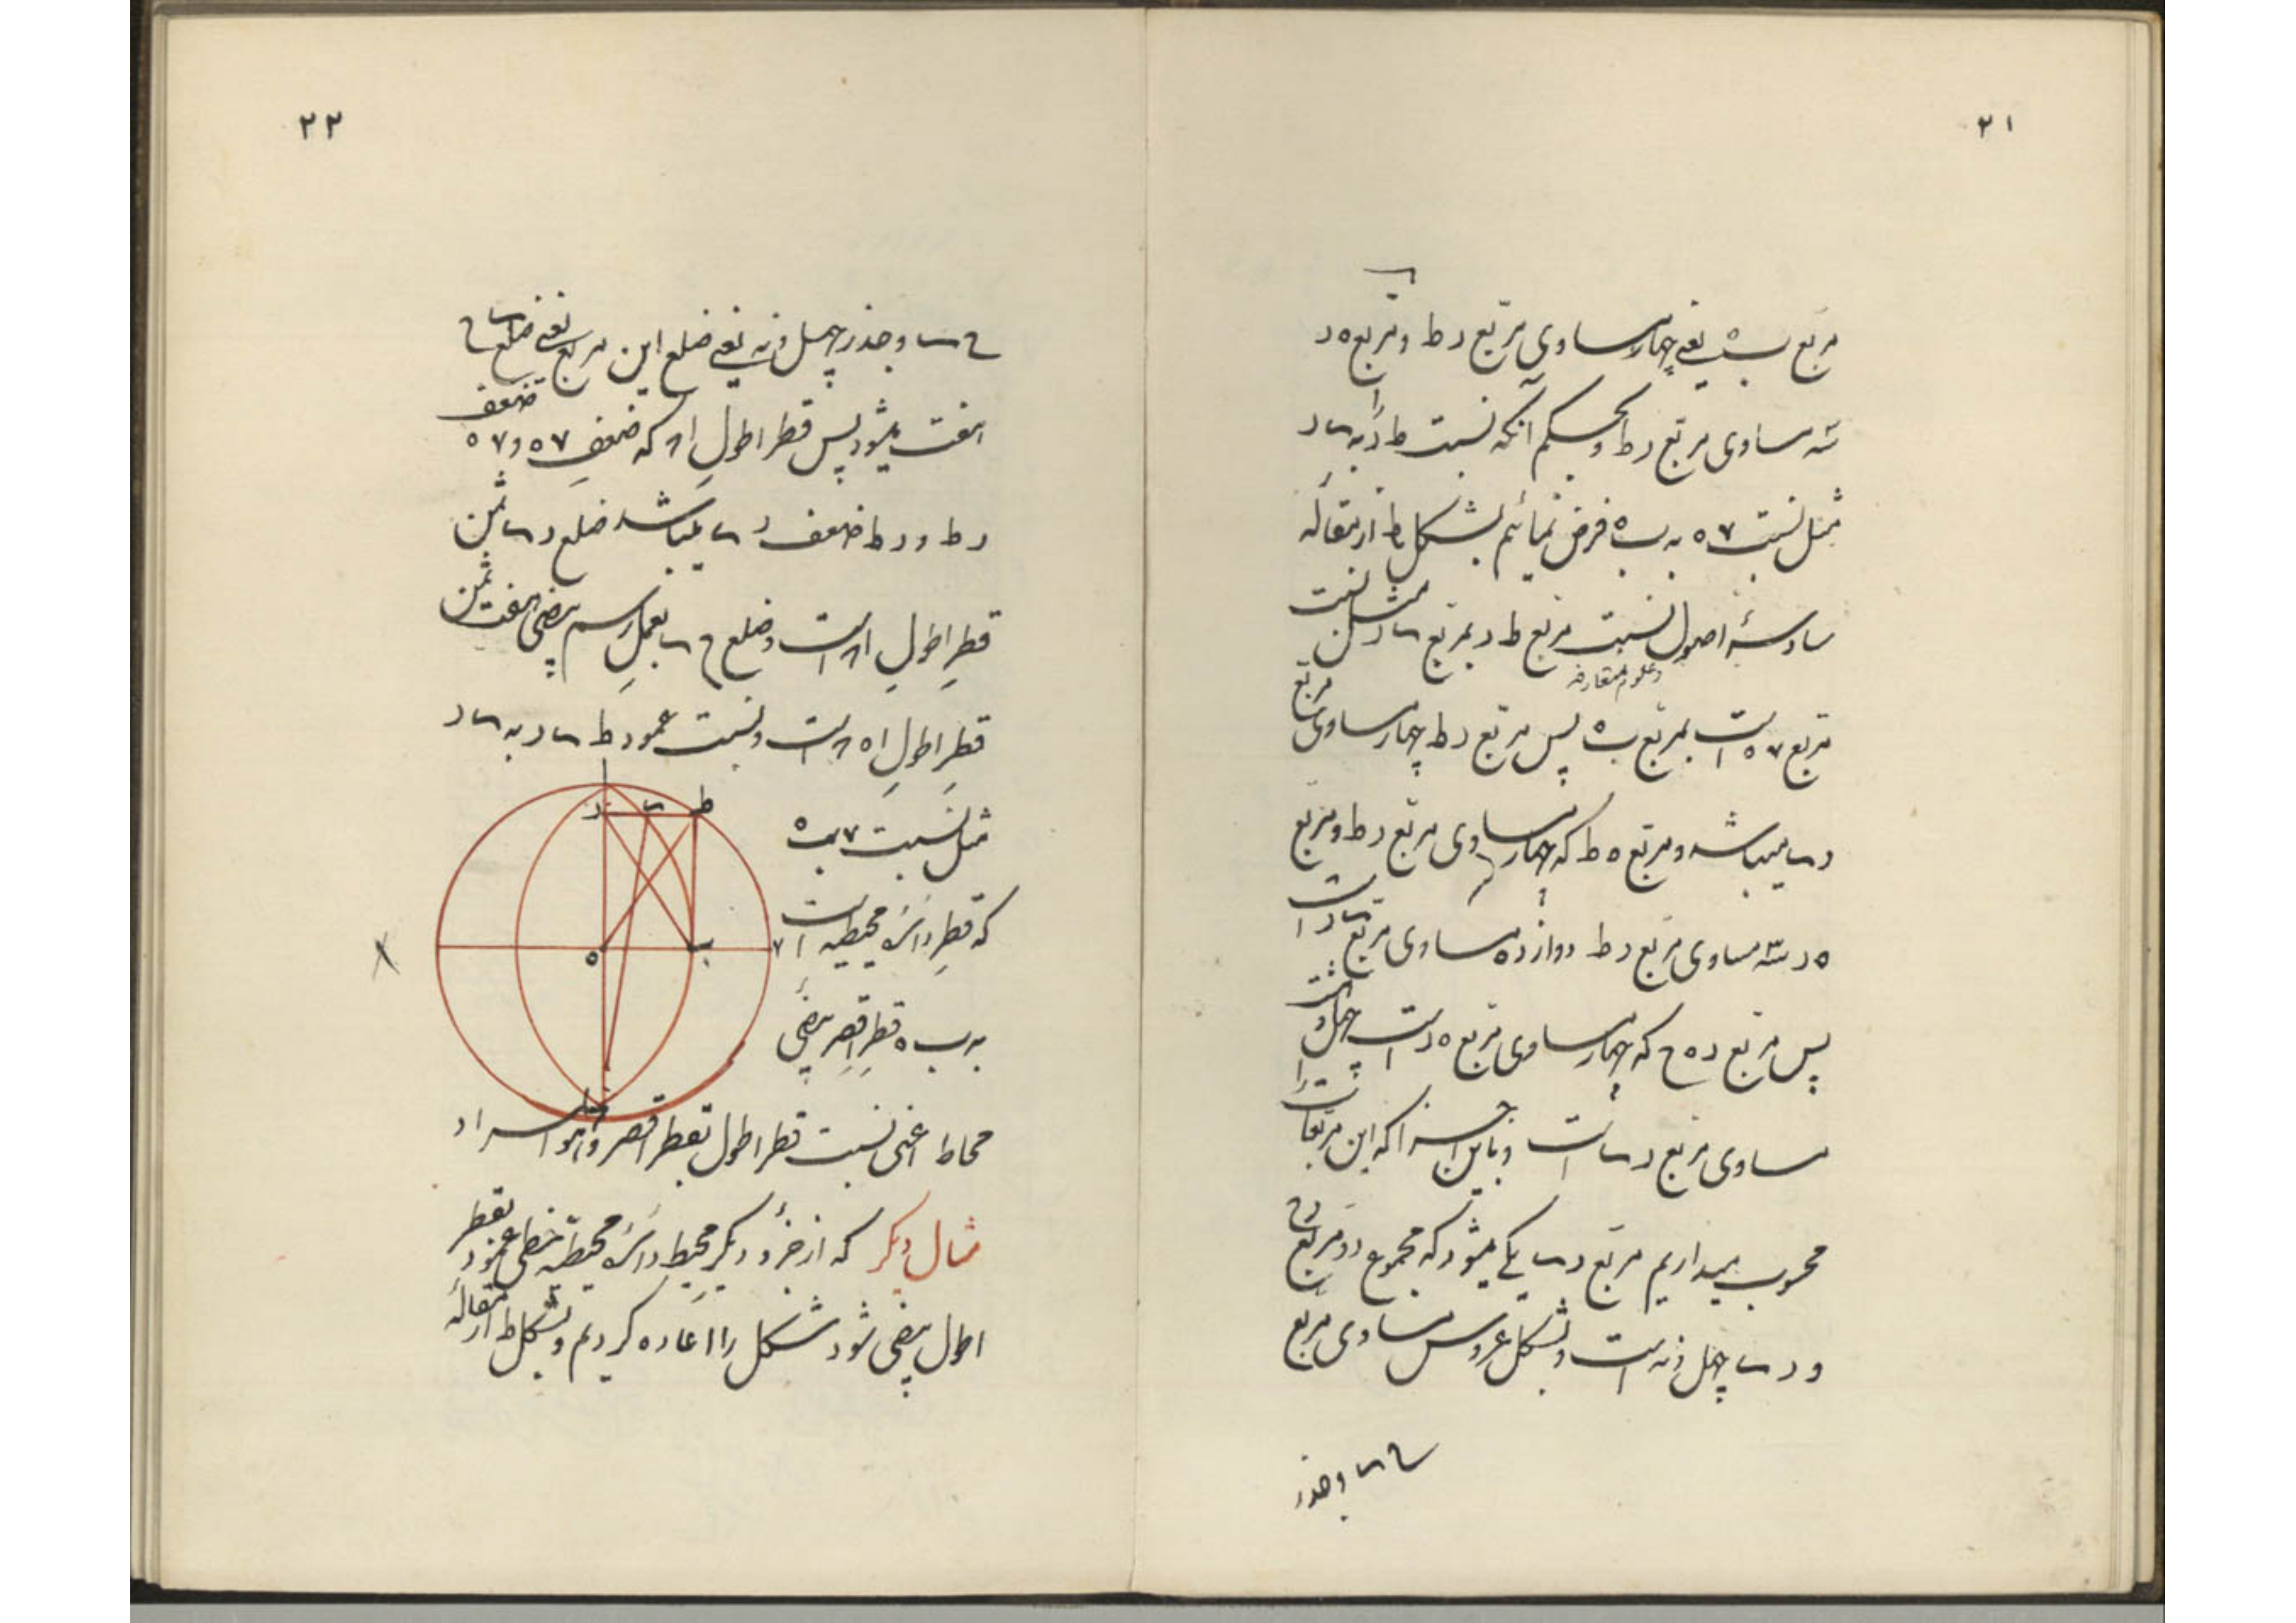 ۲۱
مربع ب ه یعنی چهار مساوی مربع د ط و مربع ه د
سه مساوی مربع د ط و بحکم آنکه نسبت ط د به س د
مثل نسبت ۷ ه به ب ه فرض نمائیم بشکل ط از مقاله
سادسهٔ اصول نسبت مربع ط د بمربع س د مثل نسبت
و علوم متعارفه
مربع ۷ ه است بمربع ب ه پس مربع د ط چهار مساوی مربع
د س میباشد و مربع ه ط که چهار مساوی مربع د ط و مربع
ه د سه مساوی مربع د ط دوازده مساوی مربع س د است
پس مربع د ه ح که چهار مساوی مربع ه د است چهل و هشت
مساوی مربع د س است و باین اجزا که این مربعات را
محسوب میداریم مربع د س یکی میشود که مجموع دو مربع د ح
و د س چهل و نه است و بشکل عروس مساوی مربع
ح س و جذر
۲۲
ح س و جذر چهل و نه یعنی ضلع این مربع یعنی ضلع س ح
هفت میشود پس قطر اطول ا ۸ که ضعف ۷ ه و ۷ ه ضعف
د ط و د ط ضعف د س میباشد ضلع د س ثمن
قطر اطول ا ۸ است و ضلع ح س بعمل رسم بیضی هفت ثمن
قطر اطول ا ه ۸ است و نسبت عمود ط س د به س د
مثل نسبت ۷ ب ه
که قطر دائرهٔ محیطیه است
به ب ه قطر اقصر بیضی
محاط اعنی نسبت قطر اطول بقطر اقصر و هو المراد
ا
د س ط
ه ب ۷
مثال دیگر که از جزؤ دیگر محیط دائرهٔ محیطیه خطی عمود بقطر
اطول بیضی شود شکل را اعاده کردیم و بشکل ط از مقالهٔ